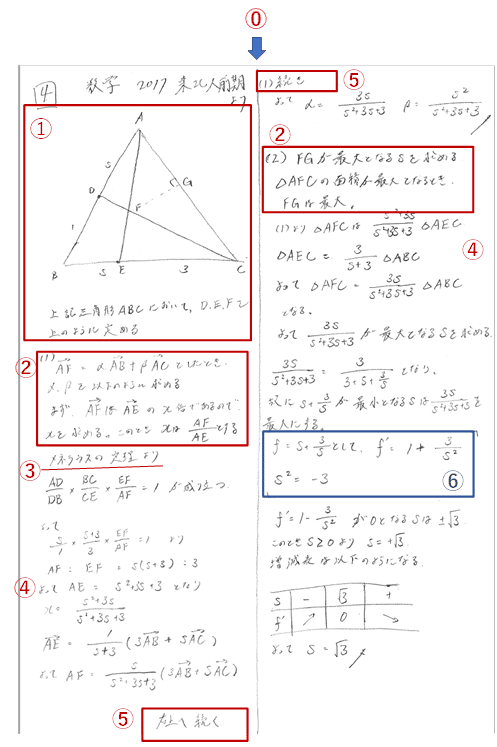 ⓪
4
数学 2017 東北大前期
より
①
A
S
D
G
F
1
B
S
E
3
C
上記三角形ABCにおいて, D, E, Fを
上のように定める
②
(1)
AF = αAB + βAC としたとき,
α, βを以下のように求める
まず, AFはAEのx倍であるので
xを求める。このとき xは AF/AE とする
③
メネラウスの定理より
AD/DB × BC/CE × EF/AF = 1 が成り立つ.
よって
S/1 × S+3/3 × EF/AF = 1 より
AF : EF = S(S+3) : 3
④
よって AE = S²+3S+3 となり
x = S²+3S/S²+3S+3
AE = 1/S+3 (3AB + SAC)
よって AF = S/S²+3S+3 (3AB + SAC)
⑤
右上へ続く
(1)続き
⑤
よって α = 3S/S²+3S+3 β = S²/S²+3S+3
②
(2) FGが最大となるSを求める
△AFCの面積が最大となるとき,
FGは最大。
(1)より △AFCは S²+3S/S²+3S+3 △AEC
④
△AEC = 3/S+3 △ABC
よって △AFC = 3S/S²+3S+3 △ABC
となる.
よって 3S/S²+3S+3 が最大となるSを求める.
3S/S²+3S+3 = 3/3+S+3/S となり,
故に S+3/S が最小となるSは 3S/S²+3S+3 を
最大にする.
f = S+3/S として, f' = 1+ 3/S²
S² = -3
⑥
f' = 1- 3/S² が0となるSは ±√3.
このとき S≥0より S=+√3.
増減表は以下のようになる.
S - √3 +
f' ↗ 0 ↘
よって S = √3